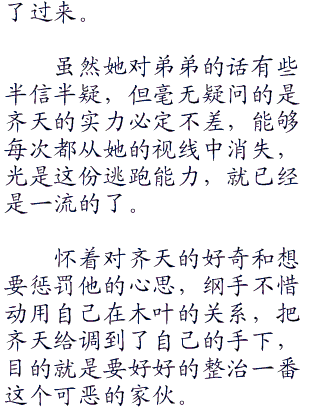 了过来。
虽然她对弟弟的话有些
半信半疑，但毫无疑问的是
齐天的实力必定不差，能够
每次都从她的视线中消失，
光是这份逃跑能力，就已经
是一流的了。
怀着对齐天的好奇和想
要惩罚他的心思，纲手不惜
动用自己在木叶的关系，把
齐天给调到了自己的手下，
目的就是要好好的整治一番
这个可恶的家伙。